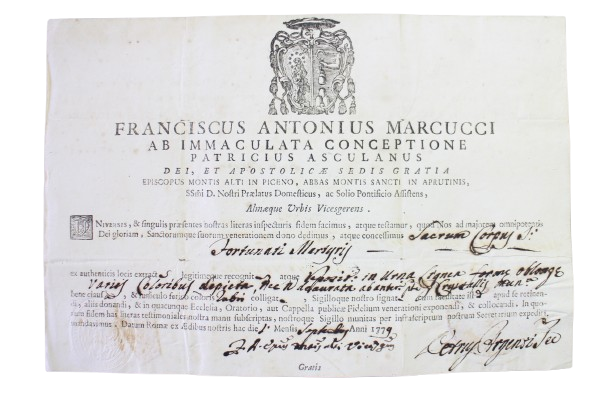 FRANCISCUS ANTONIUS MARCUCCI
AB IMMACULATA CONCEPTIONE
PATRICIUS ASCULANUS
DEI, ET APOSTOLICÆ SEDIS GRATIA
EPISCOPUS MONTIS ALTI IN PICENO, ABBAS MONTIS SANCTI IN APRUTINIS,
SSmi D. Nostri Prælatus Domesticus, ac Solio Pontificio Assistens,
Almæque Urbis Vicesgerens.
UNIVERSIS, & singulis præsentes nostras literas inspecturis fidem facimus, atque testamur, quod Nos ad majorem omnipotentis
Dei gloriam, Sanctorumque suorum venerationem dono dedimus, atque concessimus Sacrum Corpus S:
Fortunati Martyris
ex authenticis locis extract legitimoque recognit atque in Urna Lignea formæ oblongæ
Varijs Coloribus depicta, ac deaurata Crystallis
bene claus & funiculo serico coloris rubri colligat Sigilloque nostro signat apud se retinendi, aliis donandi, & in quacunque Ecclesia, Oratorio, aut Cappella publicæ Fidelium venerationi exponendi, & collocandi. In quorum
fidem has literas testimoniales nostra manu subscriptas, nostroque Sigillo munitas per infrascriptum nostrum Secretarium expediri
mandavimus. Datum Romæ ex Ædibus nostris hac die Mensis Anni 1779
Gratis